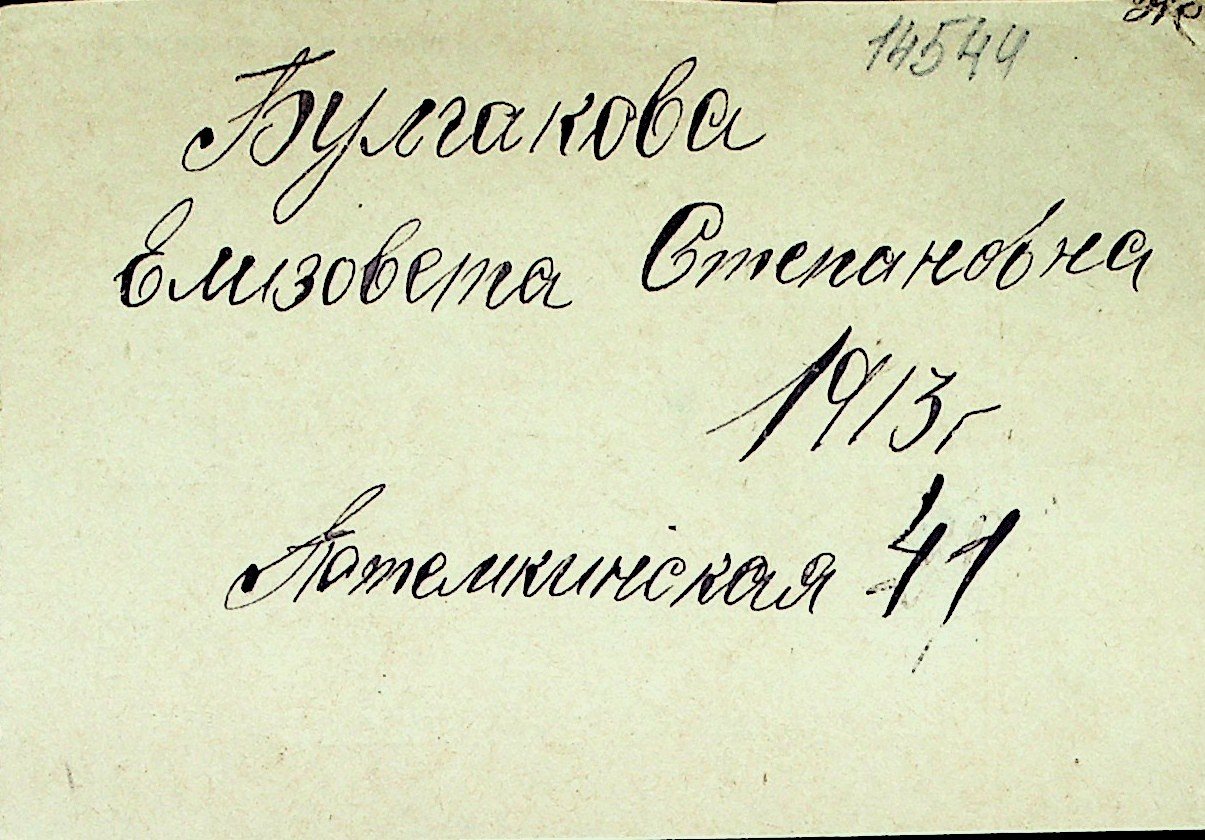 14544
Булгакова
Елизовета Степановна
1913г
Потемкинская 41